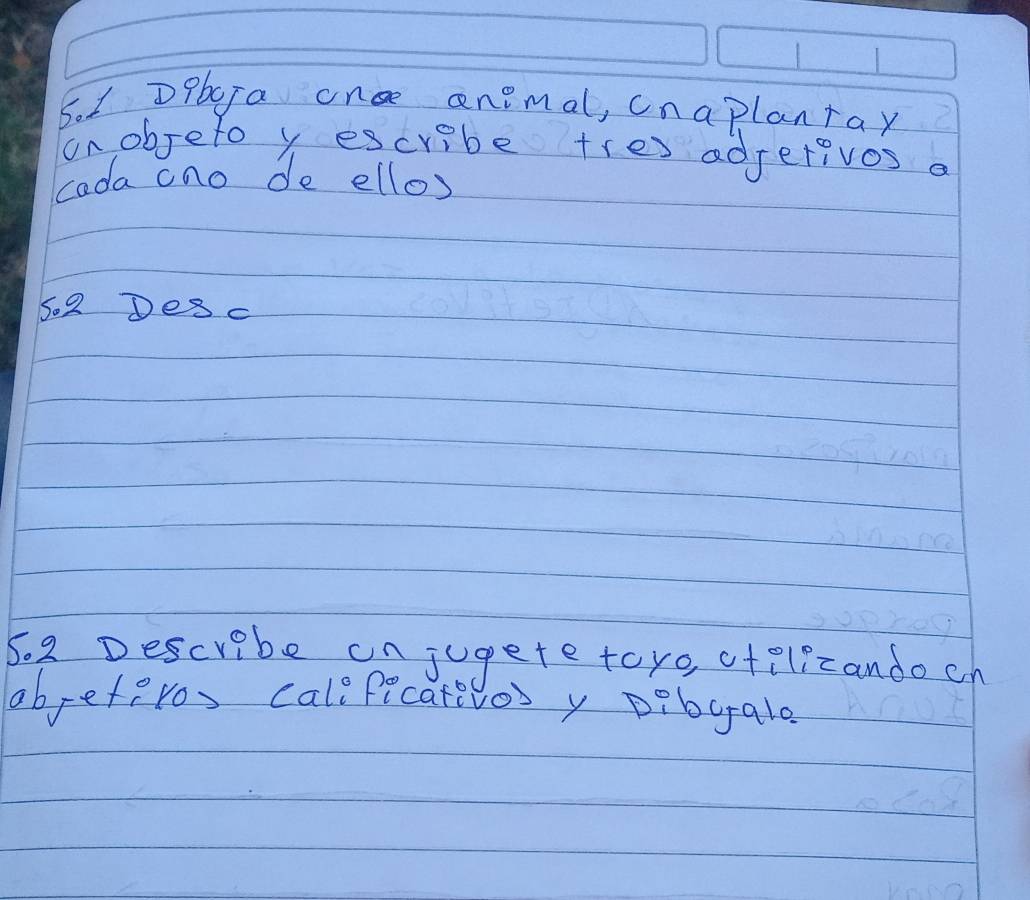 5.1 Dibuja una animal, una planta y
un objeto y escribe tres adjetivos a
cada uno de ellos
5.2 Desc
5.2 Describe un jugete tuyo, utilizando un
abjetivos calificativos y Dibujalo